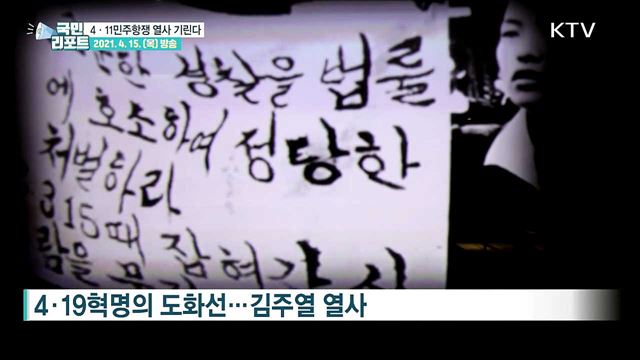 국민
리포트
4·11민주항쟁 열사 기린다
2021. 4. 15. (목) 방송
KTV
한 경찰을 법률
에 호소하여 정당한
처벌하라
315때 잡혀간 사
람을
4·19혁명의 도화선…김주열 열사